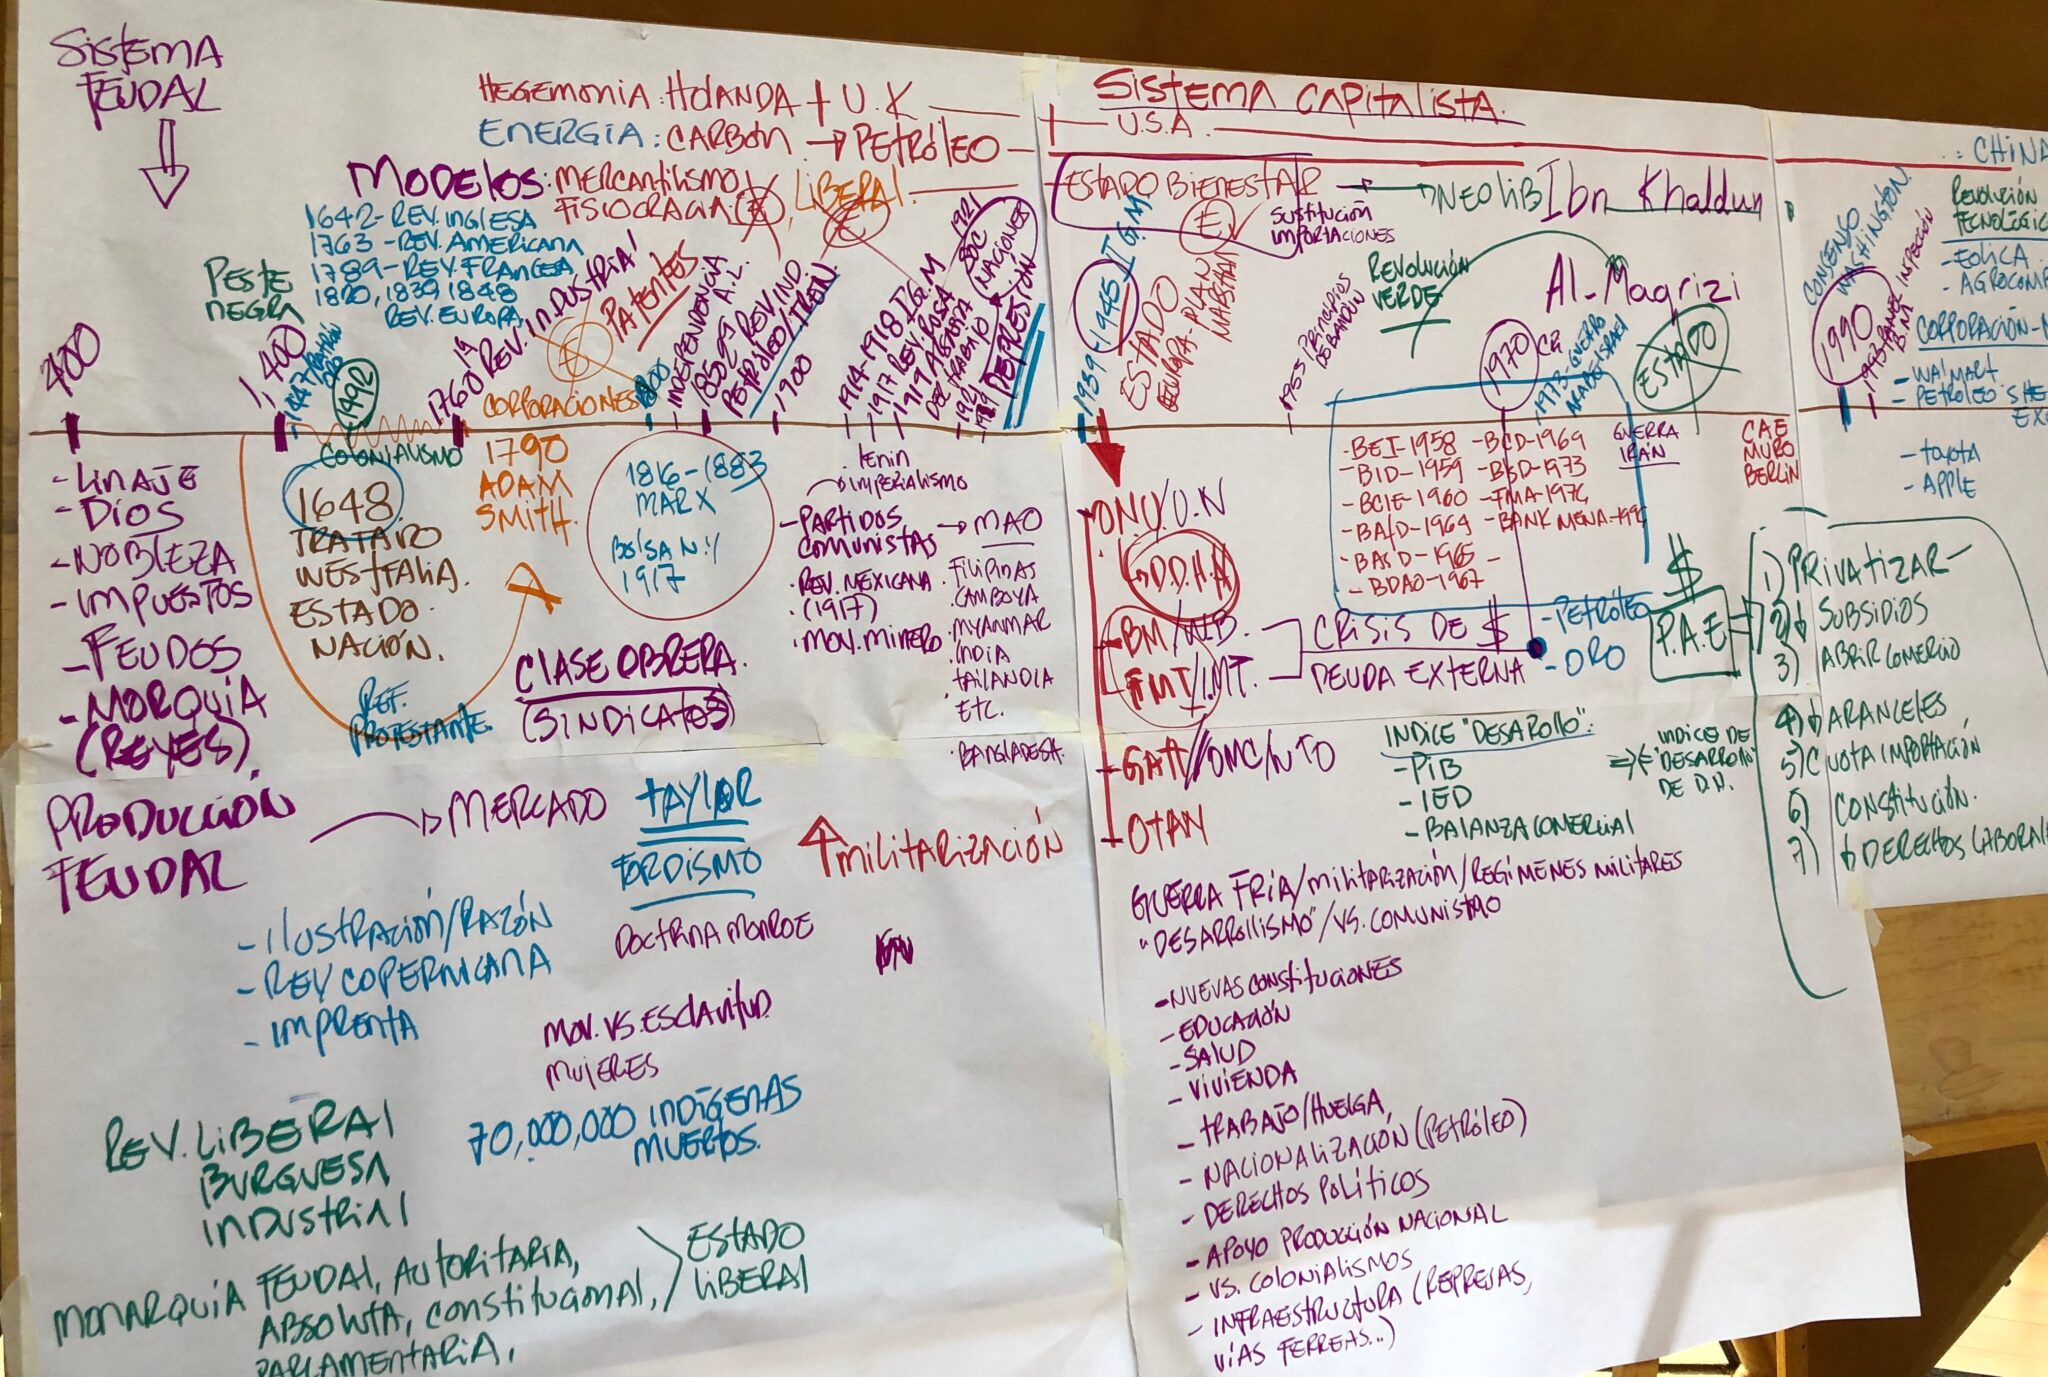 SISTEMA
FEUDAL
HEGEMONIA: HOLANDA + U.K
ENERGIA: CARBON → PETRÓLEO
MODELOS: MERCANTILISMO
FISIOCRACIA (E), LIBERAL
1642-REV. INGLESA
1763-REV. AMERICANA
1789-REV. FRANCESA
1820, 1839, 1848
REV. EUROPA
PESTE
NEGRA
SISTEMA CAPITALISTA.
U.S.A
ESTADO BIENESTAR → NEOLIB
Ibn Khaldun
SUSTITUCIÓN
IMPORTACIONES
REVOLUCIÓN
VERDE
Al-Maqrizi
CHINA
CONSENSO
WASHINGTON
REVOLUCIÓN
TECNOLÓGIC
- EOLICA
- AGROCOM
CORPORACIÓN-
- WALMART
- PETROLEO SHE
EX
- TOYOTA
- APPLE
400
1,400
1492
COLONIALISMO
1760 REV. INDUSTRIAL
PATENTES
E
CORPORACIONES
INDEPENDENCIA
A.L.
REV. IND
PETRÓLEO/TREN
1900
E
1914-1918 I G.M
1917 REV. RUSA
1919
DEL TRABAJO
1921
SOC
NACIONES
1929 DEPRESIÓN
1939-1945 II G.M.
E
ESTADO
EUROPA-PLAN
MARSHALL
1955 PRINCIPIOS
DE BANDUN
1970 CR
1973-GUERRA
ARABE ISRAEL
ESTADO
1990
1993 PANEL INSPECCIÓN
B.M
- LINAJE
- DIOS
- NOBLEZA
- IMPUESTOS
- FEUDOS
- MORQUIA
(REYES).
1648
TRATADO
WESTFALIA.
ESTADO
NACIÓN.
REF.
PROTESTANTE.
1790
ADAM
SMITH.
1816-1883
MARX
BOLSA N.Y
1917
CLASE OBRERA.
(SINDICATOS)
LENIN
→ IMPERIALISMO
- PARTIDOS
COMUNISTAS → MAO
. REV. MEXICANA
(1917)
. MOV. MINERO
. FILIPINAS
. CAMBOYA
. MYANMAR
. INDIA
TAILANDIA
ETC.
. BANGLADESH.
- ONU/U.N
→ D.D.H.H
- BM/W.B.
FMI/I.MT.
- GATT//OMC/WTO
- OTAN
- BEI-1958
- BID-1959
- BCIE-1960
- BAfD-1964
- BAsD-1965
- BDAO-1967
- BCD-1969
- BISD-1973
- FMA-1976
GUERRA
IRÁN
CAE
MURO
BERLIN
CRISIS DE $
DEUDA EXTERNA
- PETRÓLEO
- ORO
$
P.A.E
1) PRIVATIZAR
2) ↓ SUBSIDIOS
3) ABRIR COMERCIO
4) ↓ ARANCELES
5) CUOTA IMPORTACIÓN
6) CONSTITUCIÓN.
7) ↓ DERECHOS LABORAL
INDICE "DESAROLLO":
- PIB
- IED
- BALANZA COMERCIAL
INDICE DE
"DESARROLLO"
DE D.H.
PRODUCCIÓN
FEUDAL
→ MERCADO
TAYLOR
FORDISMO
↑ MILITARIZACIÓN
DOCTRINA MONROE
- ILUSTRACIÓN/RAZÓN
- REV COPERNICANA
- IMPRENTA
MOV. VS. ESCLAVITUD.
MUJERES
70,000,000 INDÍGENAS
MUERTOS.
REV. LIBERAL
BURGUESA
INDUSTRIAL
MONARQUÍA FEUDAL, AUTORITARIA,
ABSOLUTA, CONSTITUCIONAL,
PARLAMENTARIA,
ESTADO
LIBERAL
GUERRA FRÍA/MILITARIZACIÓN/REGÍMENES MILITARES
"DESARROLLISMO"/VS. COMUNISMO
- NUEVAS CONSTITUCIONES
- EDUCACIÓN
- SALUD
- VIVIENDA
- TRABAJO/HUELGA,
- NACIONALIZACIÓN (PETRÓLEO)
- DERECHOS POLÍTICOS
- APOYO PRODUCCIÓN NACIONAL
- VS. COLONIALISMOS
- INFRAESTRUCTURA (REPRESAS,
VÍAS FERREAS...)